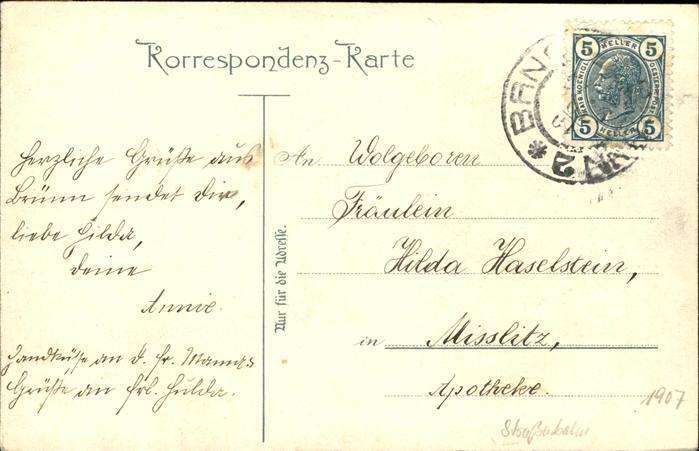 Korrespondenz-Karte
5 HELLER 5
5 HELLER 5
BRN
2
Herzliche Grüße aus
Brünn sendet Dir,
liebe Hilda,
Deine
Annie.
Handküsse an d. Fr. Mama,
Grüße an Frl. Hulda.
Nur für die Adresse.
An Wolgeboren
Fräulein
Hilda Haselstein,
in Misslitz,
Apotheke.
1907
Straßenbahn